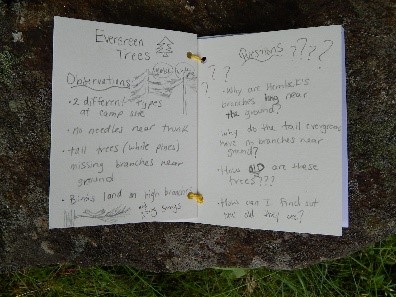 Evergreen
Trees
Observations
• 2 different types
at camp site
• no needles near trunk
• tall trees (white pines)
missing branches near
ground
• Birds land on high branches
sing songs
Questions ???
??
?
• Why are Hemlock's
branches near
the ground?
why do the tall evergreens
have no branches near
ground?
• How OLD are these
trees???
• How can I find out
how old they are?